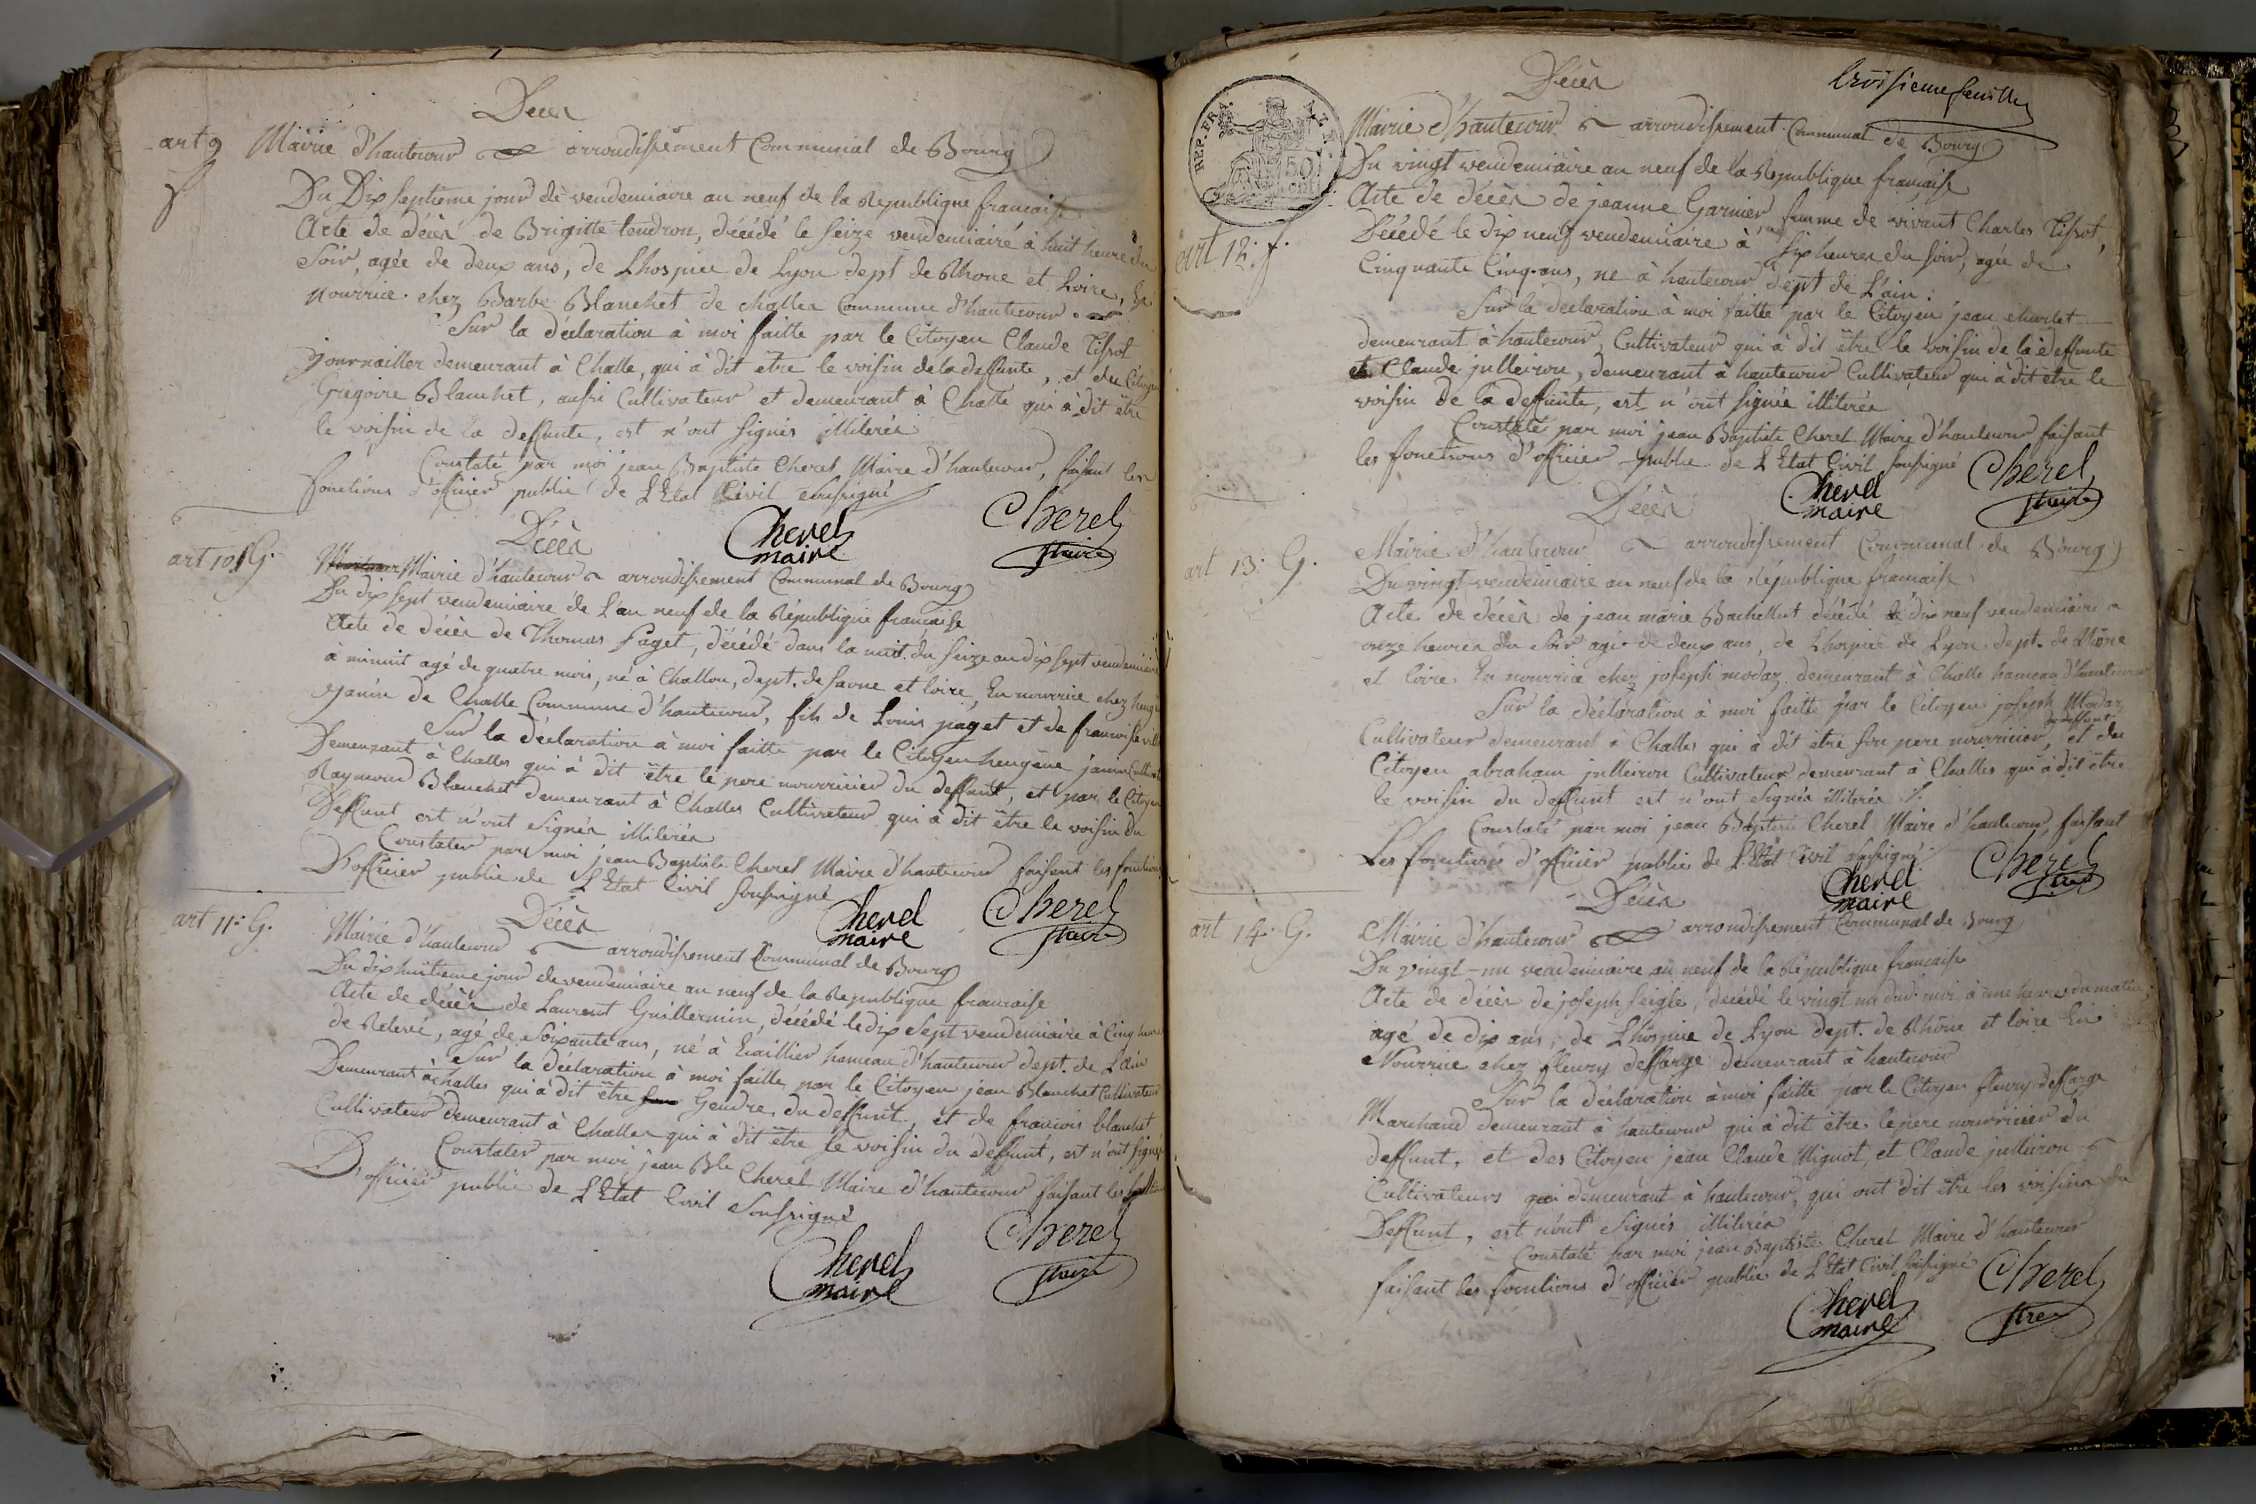 Décès
art 9 Mairie d'hautecour arrondissement Communal de Bourg
f
Du Dix septieme jour de vendemiaire an neuf de la Republique francaise
Acte de décès de Brigitte tendron, décédé le seize vendemiaire à huit heure du
soir, agée de deux ans, de Lhospice de Lyon dept de Rhone et Loire, En
nourrice chez Barbe Blanchet de challes Commune d'hautecour.
Sur la déclaration à moi faitte par le Citoyen Claude Tissot
journaillier demeurant à Challe, qui à dit etre le voisin de la deffunte, et du Citoyen
Gregoire Blanchet, aussi Cultivateur et demeurant à Challe qui à dit être
le voisin de la deffunte, est n'ont signés illiterés
Constaté par moi jean Baptiste Cherel Maire d'hautecour, faisant les
fonctions d'officier public de L'Etat Civil soussigné
Cherel maire Cherel maire
Décès
art 10 G. Mairie d'hautecour arrondissement Communal de Bourg
Du dix sept vendemiaire de L'an neuf de la République francaise
Acte de décès de Thomas paget, décédé dans la nuit du seize au dix sept vendemiaire
à minuit agé de quatre mois, né à Challon, dept. de saone et loire, En nourrice chez heugene
janin de Challe Commune d'hautecour, fils de Louis paget et de francoise
Sur la déclaration à moi faitte par le Citoyen heugene janin Cultivat
Demeurant à Challes qui à dit être le pere nourricier du deffunt, et par le Citoyen
Raymond Blanchet demeurant à Challes Cultivateur qui à dit être le voisin du
Deffunt est n'ont signés illiterés
Constater par moi jean Baptiste Cherel Maire d'hautecour faisant les fonctions
D'officier public de L'Etat Civil soussigné
Cherel maire Cherel maire
Décès
art 11. G. Mairie d'hautecour arrondissement Communal de Bourg
Du dix huitieme jour de vendemiaire an neuf de la Republique francaise
Acte de décès de Laurent Guillermin, décédé le dix sept vendemiaire à Cinq heure
de Relevé, agé de soixante ans, né à hameau d'hautecour dept. de L'ain
Sur la déclaration à moi faitte par le Citoyen jean Blanchet Cultivateur
Demeurant à Challes qui à dit être Gendre du deffunt, et de francois blanchet
Cultivateur demeurant à Challes qui à dit être le voisin du deffunt, est n'ont signés
Constater par moi jean Bte Cherel Maire d'hautecour faisant les fonction
D'officier public de L'Etat Civil soussigné
Cherel maire Cherel maire
troisieme feuille
REP. FRA.
50 cent
Décès
Mairie d'hautecour arrondissement Communal de Bourg
Du vingt vendemiaire an neuf de la Republique francaise
art 12. f. Acte de décès de jeanne Garnier femme de vivant Charles Tissot,
Décédé le dix neuf vendemiaire à six heures du soir, agé de
Cinquante Cinq ans, ne à hautecour dept de L'ain.
Sur la declaration à moi faitte par le Citoyen jean
demeurant à hautecour, Cultivateur qui à dit être le voisin de la deffunte
et Claude julleiron, demeurant à hautecour Cultivateur qui à dit etre le
voisin de la deffunte, est n'ont signés illiterés
Constaté par moi jean Baptiste Cherel Maire d'hautecour faisant
les fonctions d'officier public de L'Etat Civil soussigné
Cherel maire Cherel maire
Décès
art 13. G. Mairie d'hautecour arrondissement Communal de Bourg
Du vingt vendemiaire an neuf de la République francaise
Acte de décès de jean marie Bachellut décédé le dix neuf vendemiaire a
onze heures du soir agé de deux ans, de Lhospice de Lyon dept. de Rhône
et loire En nourrice chez joseph modaz demeurant à Challe hameau d'hautecour
Sur la déclaration à moi faitte par le Citoyen joseph Modaz
du deffunt
Cultivateur demeurant à Challes qui à dit être son pere nourricier, et du
Citoyen abraham julleiron Cultivateur demeurant à Challes qui à dit être
le voisin du deffunt est n'ont signés illiterés
Constaté par moi jean Baptiste Cherel Maire d'hautecour, faisant
Les fonctions d'officier public de L'Etat Civil soussigné
Cherel maire Cherel maire
Décès
art 14. G. Mairie d'hautecour arrondissement Communal de Bourg
Du vingt-un vendemiaire an neuf de la République francaise
Acte de décès de joseph seigle, décédé le vingt un dud. moi à une heures du matin,
agé de dix ans, de Lhospice de Lyon dept. de Rhône et loire En
Nourrice chez fleury deffarge demeurant à hautecour
Sur la déclaration à moi faitte par le Citoyen fleury deffarge
Marchand demeurant à hautecour qui à dit être le pere nourricier du
deffunt, et des Citoyen jean Claude Mignot et Claude julleiron
Cultivateurs demeurant à hautecour, qui ont dit être les voisins du
Deffunt, est n'ont signés illiterés
Constaté par moi jean Baptiste Cherel Maire d'hautecour
faisant les fonctions d'officier public de L'Etat Civil soussigné
Cherel maire Cherel maire